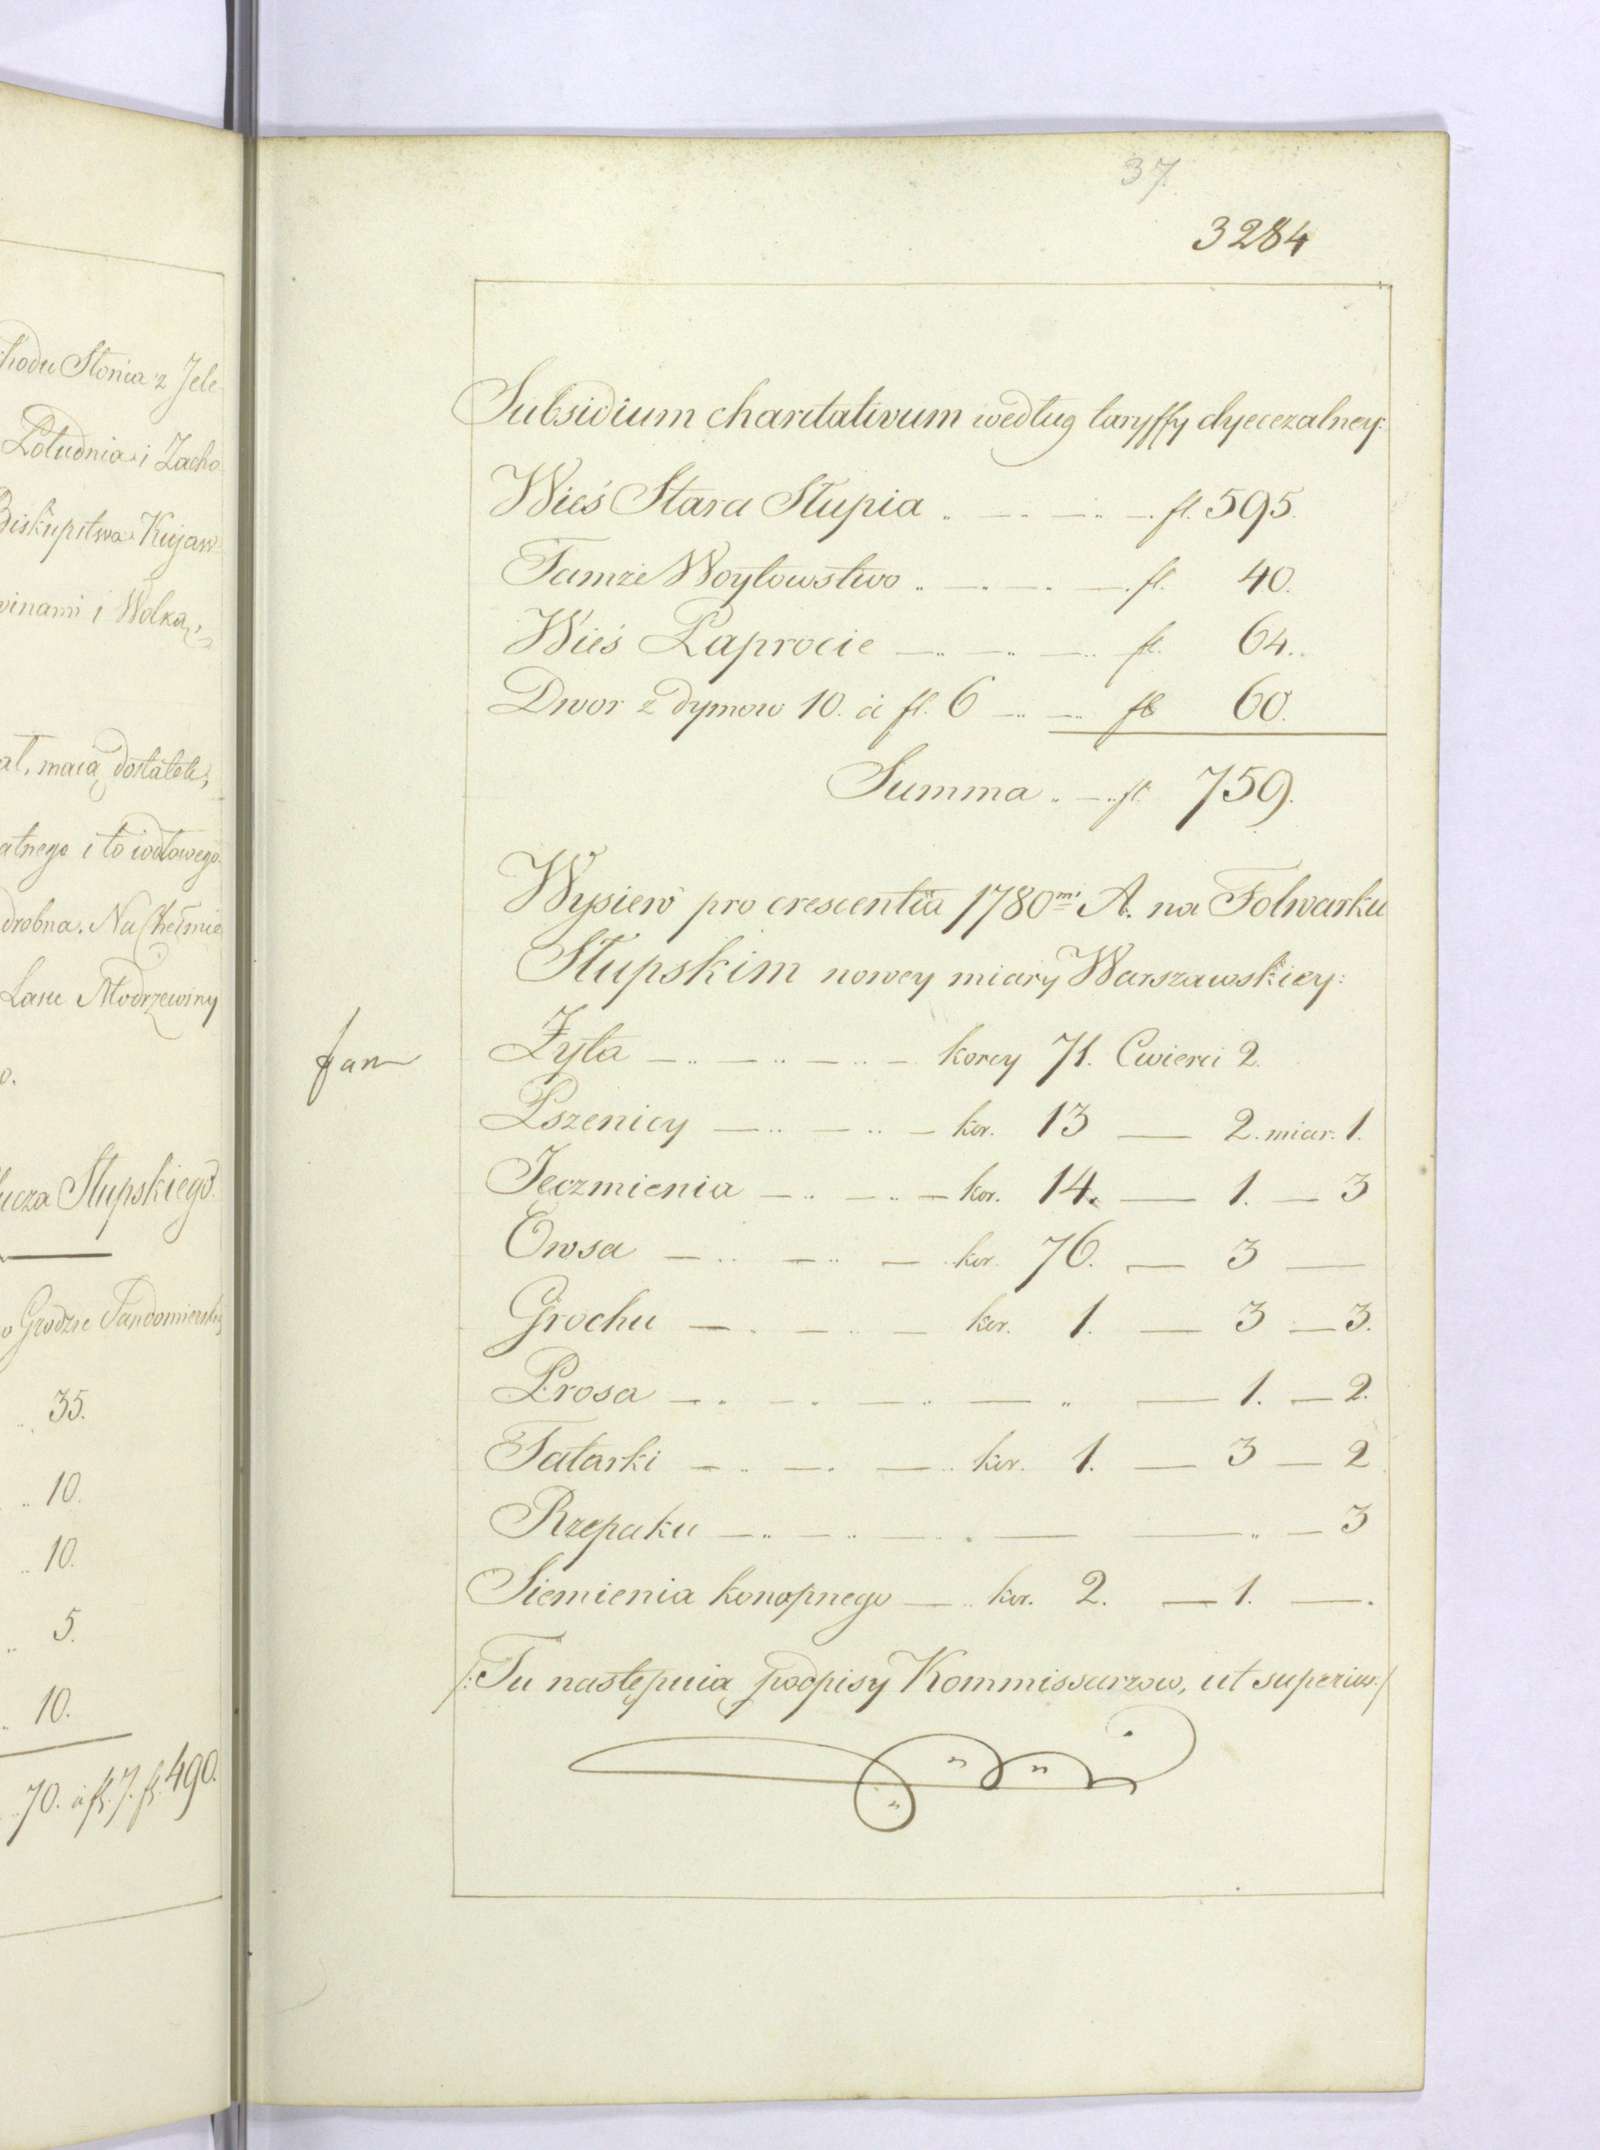 hodu Słonia z Jele
Południa i Zacho
Biskupstwa Kujaw
winami i Wolką,
at, maią dostatek,
atnego i to iodłowego
drobna. Na Chełmie
Lasu Modrzewiny
o.
ucza Słupskiego.
o Grodzie Sandomierski
.. 35.
.. 10.
.. 10.
.. 5.
.. 10.
.. 70. à fl. 7. fl. 490.
37.
3284
Subsidium charitativum według taryffy dyecezalney:
Wieś Stara Słupia .. — .. — .. — . fl. 595.
Tamże Woytowstwo .. — .. — .. — . fl. 40.
Wieś Paprocie — .. — .. — .. fl. 64..
Dwor z dymow 10. à fl. 6 — .. — .. fl 60.
Summa .. — .. fl. 759.
Wysiew pro crescentia 1780mi A. na Folwarku
Słupskim nowey miary Warszawskiey:
fan
Żyta — .. — .. — .. — korcy 71. Cwierci 2.
Pszenicy — .. — .. — kor. 13 — 2. miar. 1.
Jęczmienia — .. — .. — kor. 14. — 1. — 3
Owsa — .. — .. — kor. 76. — 3 —
Grochu — . — .. — kor. 1. — 3 — 3.
Prosa — .. — .. — .. — .. — 1. — 2.
Tatarki — .. — .. — .. kor. 1. — 3 — 2
Rzepaku — .. — .. — . — — .. — 3
Siemienia konopnego — .. kor. 2. — 1. — .
/: Tu następuią podpisy Kommissarzow, ut superius. /